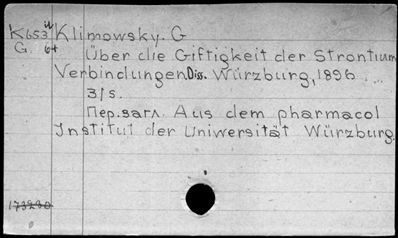 K653 ü Klimowsky. G
G. 6+
Über die Giftigkeit der Strontium
Verbindungen. Diss. Würzburg, 1896
31s.
Пер.загл. Aus dem pharmacol
Institut der Universität Würzburg.
173230